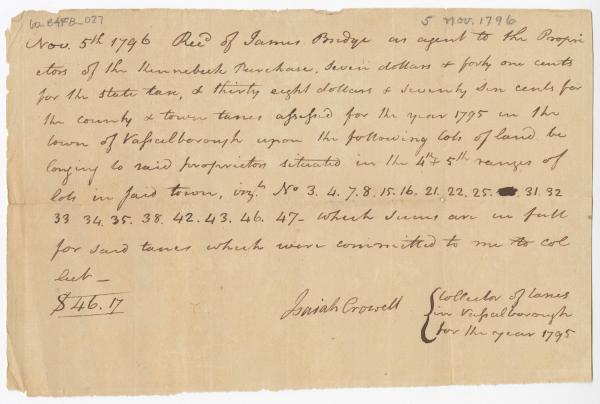 6a_C4FB_027
5 Nov. 1796
Nov. 5th 1796 Recd of James Bridge as agent to the Propri
etors of the Kennebeck Purchase, seven dollars & forty one cents
for the state tax, & thirty eight dollars & seventy six cents for
the county & town taxes assessed for the year 1795 in the
town of Vassalborough upon the following lots of land be
longing to said proprietors situated in the 4th & 5th ranges of
lots in said town, viz. No 3. 4. 7. 8. 15. 16. 21. 22. 25. 31. 32
33 34. 35. 38. 42. 43. 46. 47 – which sums are in full
for said taxes which were committed to me to col
lect –
$46.17
Isaiah Crowell
Collector of taxes
in Vassalborough
for the year 1795